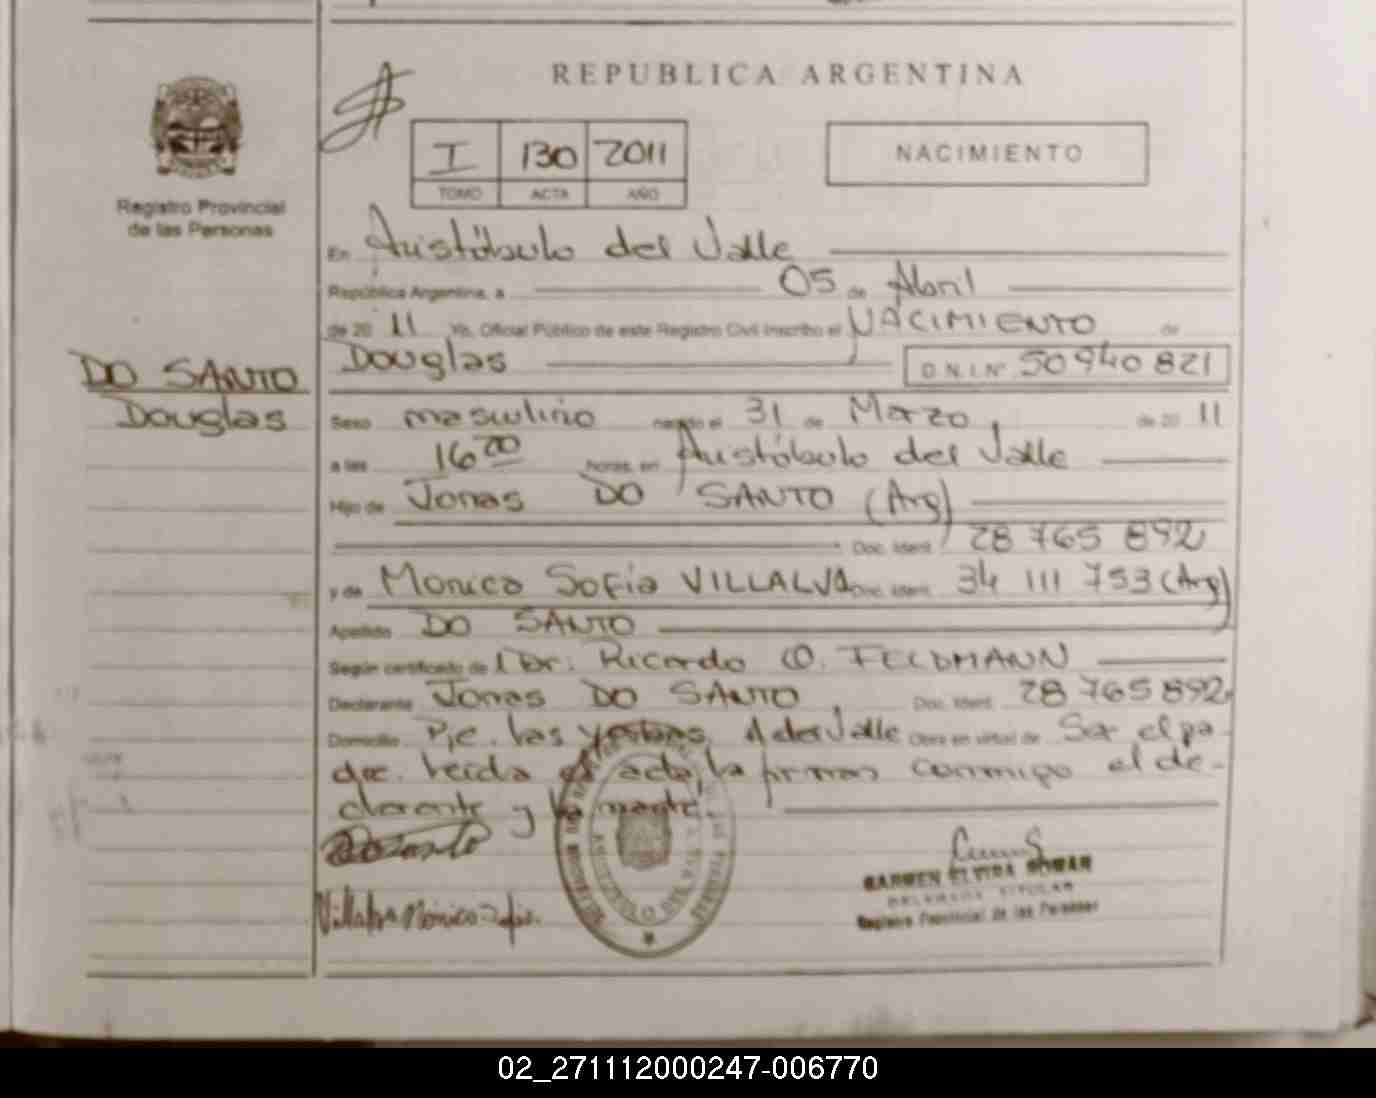 REPUBLICA ARGENTINA
I 130 2011
TOMO ACTA AÑO
NACIMIENTO
Registro Provincial
de las Personas
DO SANTO
Douglas
En Aristóbulo del Valle
República Argentina, a 05 de Abril
de 20 11 Yo, Oficial Público de este Registro Civil inscribo el NACIMIENTO de
Douglas D.N.I. Nº 50 940 821
Sexo masculino nacido el 31 de Marzo de 20 11
a las 16 00 horas, en Aristóbulo del Valle
Hijo de Jonas DO SANTO (Arg)
Doc. Ident. 28 765 892
y de Monica Sofia VILLALVA Doc. Ident. 34 111 753 (Arg)
Apellido DO SANTO
Según certificado de Dr. Ricardo O. FELDMANN
Declarante Jonas DO SANTO Doc. Ident. 28 765 892
Domicilio Pje. Las A del Valle Obra en virtud de Ser el pa-
dre. Leida el acta, la firman conmigo el de-
clarante y la madre.
DoSanto
Villalva Mónica Sofia.
CARMEN ELVIRA ROMAN
DELEGADA TITULAR
Registro Provincial de las Personas
02_271112000247-006770